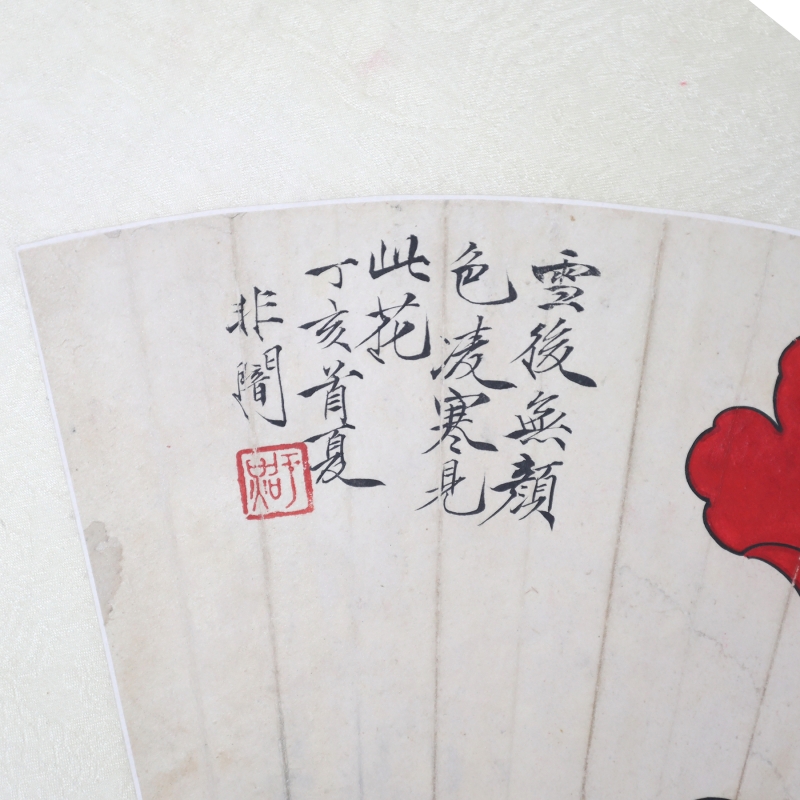 雪後無顏
色凌寒見
此花
丁亥首夏
非闇
于照